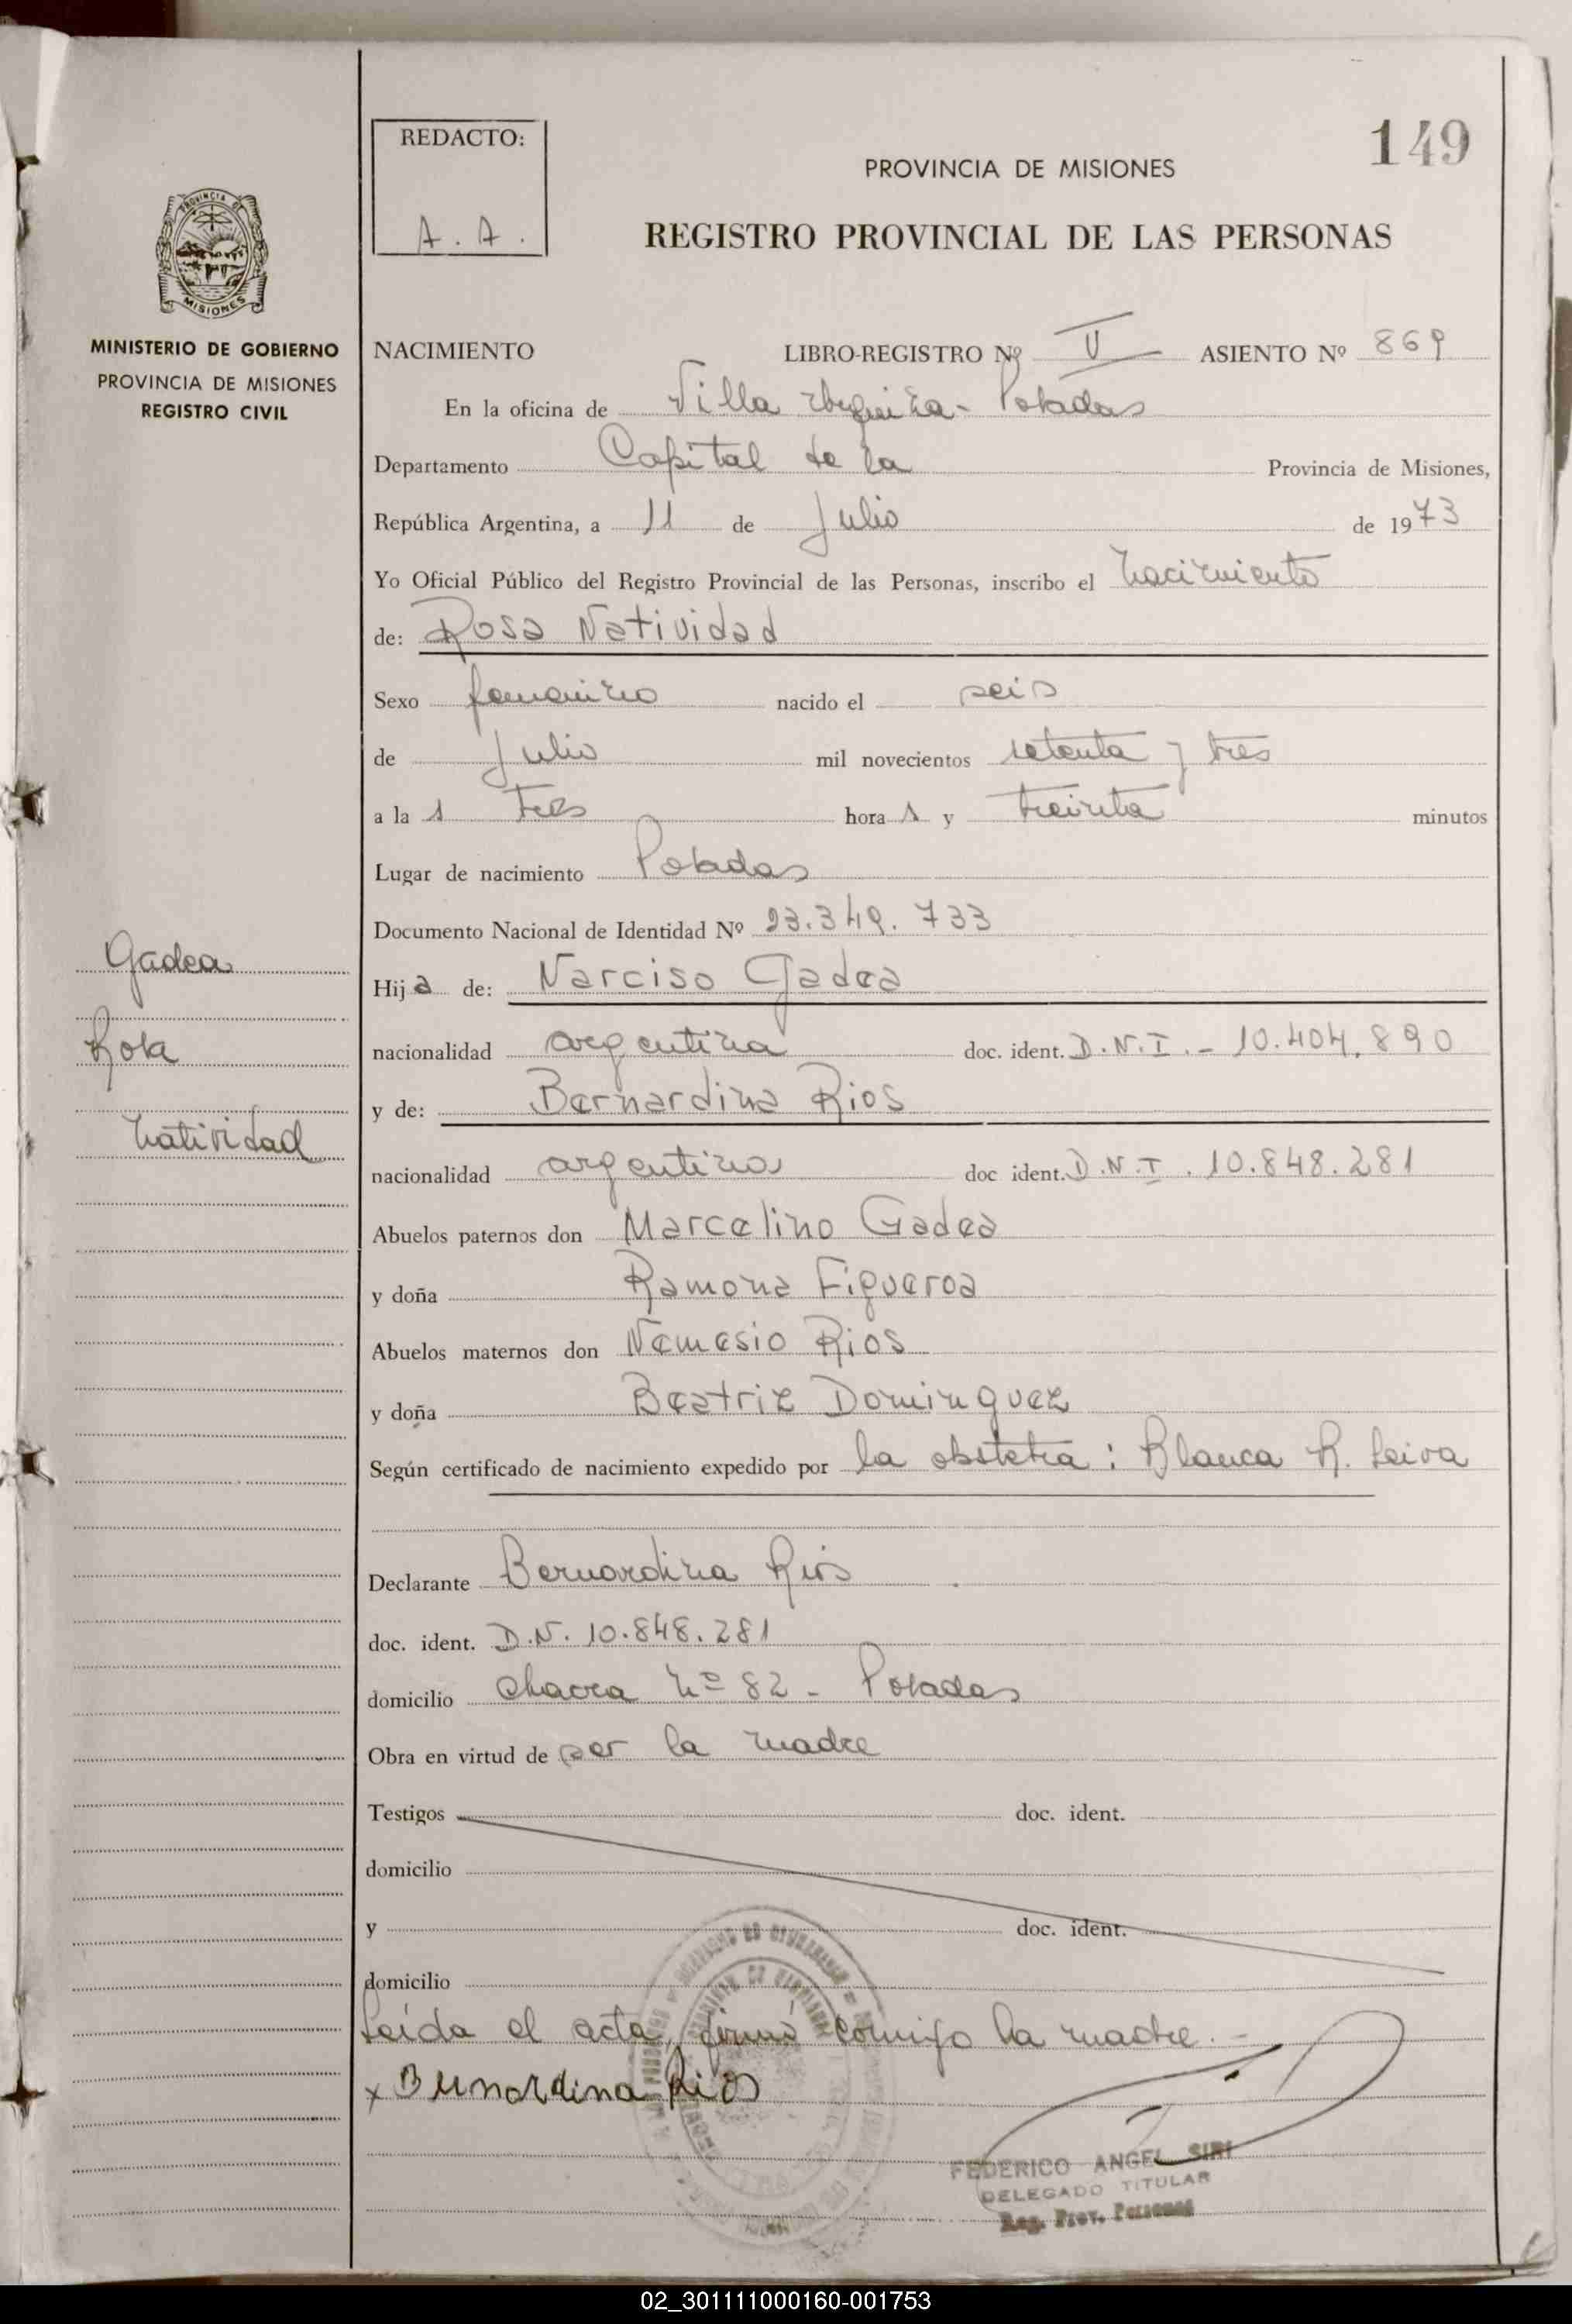 REDACTO:
A. A.
149
PROVINCIA DE MISIONES
REGISTRO PROVINCIAL DE LAS PERSONAS
MISIONES
MINISTERIO DE GOBIERNO
PROVINCIA DE MISIONES
REGISTRO CIVIL
Gadea
Rosa
Natividad
NACIMIENTO LIBRO-REGISTRO Nº II ASIENTO Nº 869
En la oficina de Villa Urquiza - Posadas
Departamento Capital de la Provincia de Misiones,
República Argentina, a 11 de Julio de 1973
Yo Oficial Público del Registro Provincial de las Personas, inscribo el nacimiento
de: Rosa Natividad
Sexo femenino nacido el seis
de Julio mil novecientos setenta y tres
a la s tres hora s y treinta minutos
Lugar de nacimiento Posadas
Documento Nacional de Identidad Nº 23.349.733
Hija de: Narciso Gadea
nacionalidad argentina doc. ident. D.N.I. - 10.404.890
y de: Bernardina Rios
nacionalidad argentina doc ident. D.N.I. 10.848.281
Abuelos paternos don Marcelino Gadea
y doña Ramona Figueroa
Abuelos maternos don Nemesio Rios
y doña Beatriz Dominguez
Según certificado de nacimiento expedido por la obstetra: Blanca R. Leiva
Declarante Bernardina Rios
doc. ident. D.N. 10.848.281
domicilio chacra Nº 82 - Posadas
Obra en virtud de ser la madre
Testigos doc. ident.
domicilio
y doc. ident.
domicilio
Leída el acta, firmó conmigo la madre. -
x Bernardina Rios
FEDERICO ANGEL SIRI
DELEGADO TITULAR
Reg. Prov. Personas
02_301111000160-001753